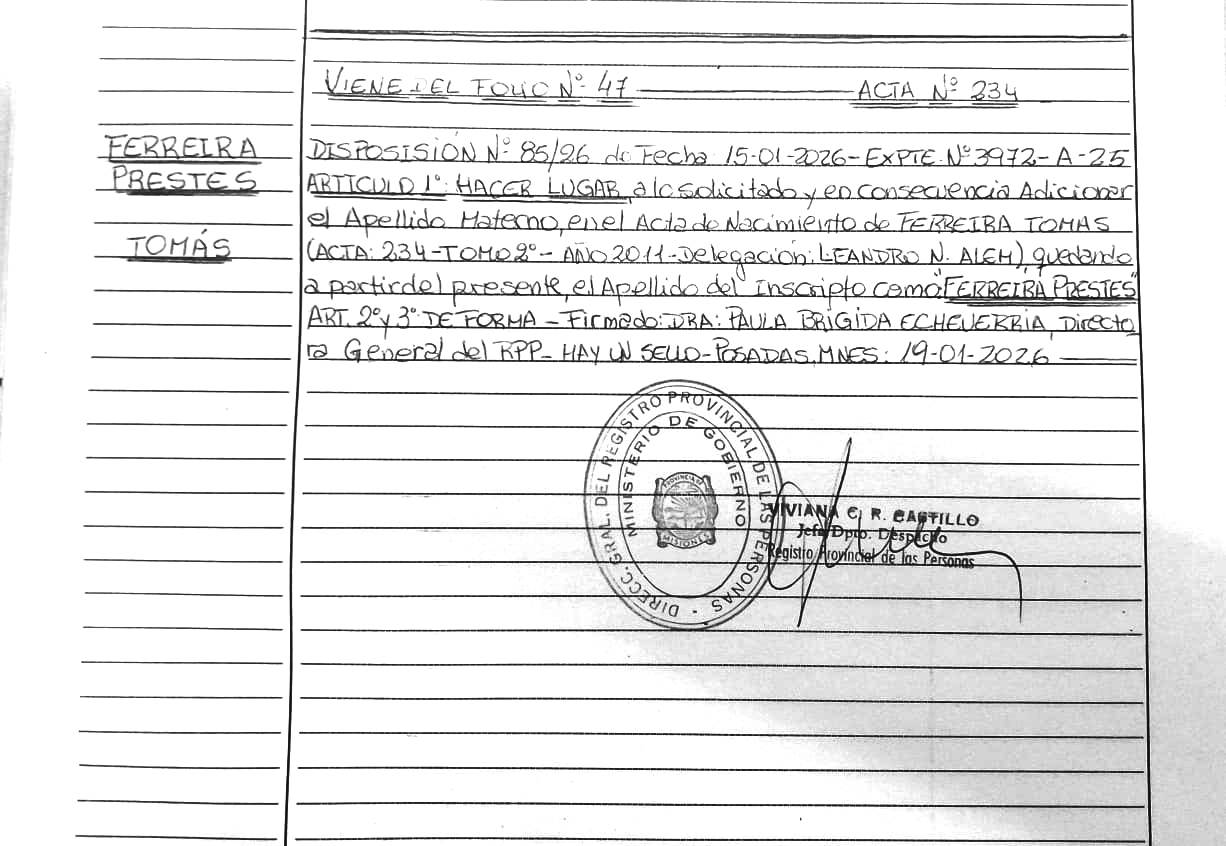 VIENE DEL FOLIO Nº 47 ACTA Nº 234
FERREIRA
PRESTES
TOMÁS
DISPOSISIÓN Nº 85/26 de Fecha 15-01-2026-EXPTE.Nº3972-A-25
ARTICULO 1º: HACER LUGAR, a lo solicitado y en consecuencia Adicionar
el Apellido Materno, en el Acta de Nacimiento de FERREIRA TOMAS
(ACTA: 234-TOMO 2º- AÑO 2011-Delegación: LEANDRO N. ALEM), quedando
a partir del presente, el Apellido del Inscripto como "FERREIRA PRESTES"
ART. 2º y 3º DE FORMA - Firmado: DRA: PAULA BRIGIDA ECHEVERRIA, Directo
ra General del RPP- HAY UN SELLO-POSADAS, MNES: 19-01-2026
DIRECC. GRAL. DEL REGISTRO PROVINCIAL DE LAS PERSONAS -
MINISTERIO DE GOBIERNO
PROVINCIA DE
MISIONES
VIVIANA C. R. CASTILLO
Jefa Dpto. Despacho
Registro Provincial de las Personas